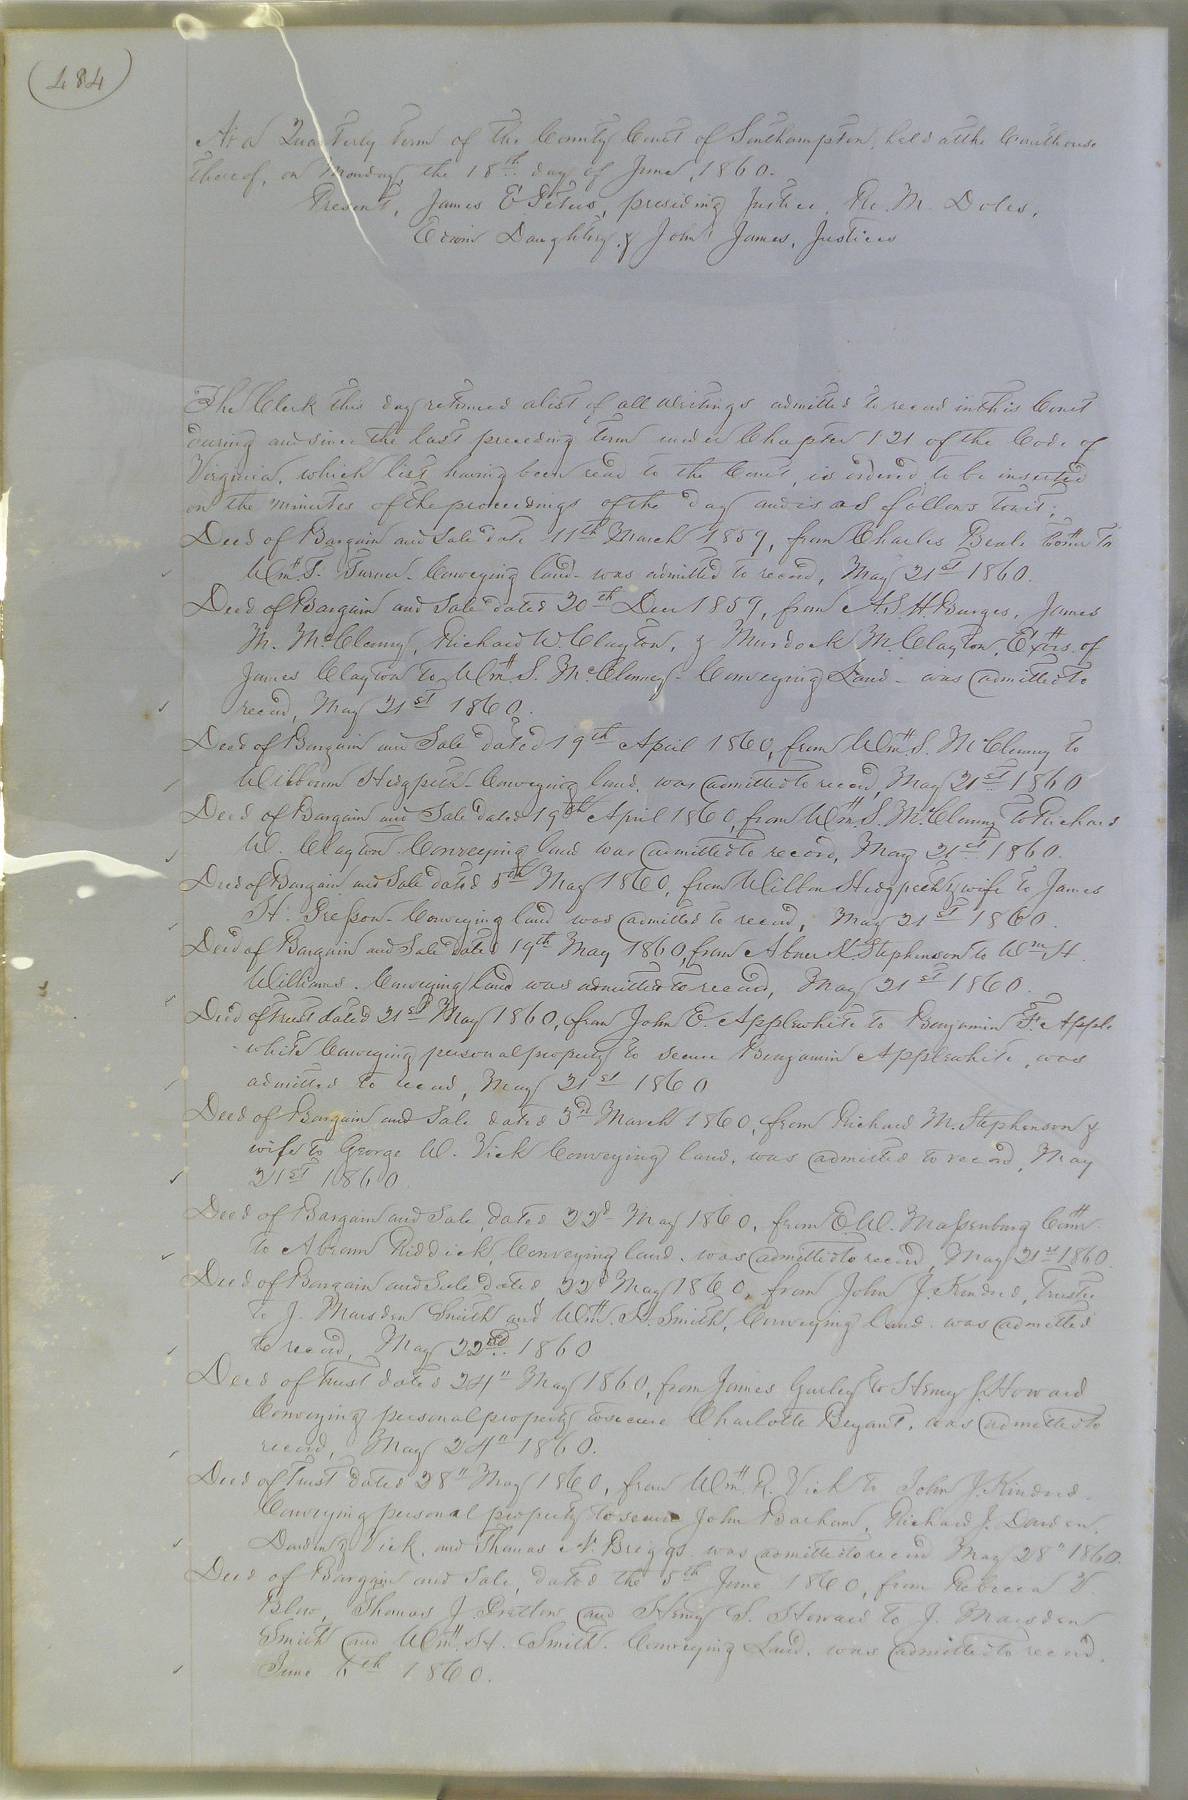 484
At a Quarterly term of the County Court of Southampton, held at the Courthouse
thereof, on Monday, the 18th day of June, 1860.
Present, James E Peters, presiding Justice, M. Doles,
Edwin Daughtry, & John James, Justices
The Clerk this day returned a list of all writings admitted to record in this Court
during and since the last preceding term under Chapter 121 of the Code of
Virginia, which list having been read to the Court, is ordered to be inserted
on the minutes of the proceedings of the day and is as follows towit;
Deed of Bargain and Sale date 11th March 1859, from Charles Beale Comr to
Wm. S. Turner. Conveying land was admitted to record, May 21st 1860.
Deed of Bargain and Sale dated 20th Decr 1859, from A. S. H. Burges, James
M. McClenny, Richard W. Clayton, & Murdock M. Clayton, Extrs. of
James Clayton to Wm. S. McClenney - Conveying Land - was admitted to
record, May 21st 1860.
Deed of Bargain and Sale dated 19th April 1860, from Wm. S. McClenny to
Hedgpeth - Conveying land, was admitted to record, May 21st 1860
Deed of Bargain and Sale dated 19th April 1860, from Wm. S. McClenny to Richard
W. Clayton Conveying land was admitted to record, May 21st 1860.
Deed of Bargain and Sale dated 5th May 1860, from Hedgpeth & wife to James
H. Gresson - Conveying land was admitted to record, May 21st 1860.
Deed of Bargain and Sale dated 19th May 1860, from Abner K Stephenson to Wm H.
Williams. Conveying land was admitted to record, May 21st 1860.
Deed of trust dated 21st May 1860, from John E. Applewhite to Benjamin F. Apple
-white Conveying personal property to secure Benjamin Applewhite, was
admitted to record, May 21st 1860
Deed of Bargain and Sale dated 3rd March 1860, from Richard M. Stephenson &
wife to George W. Vick Conveying land, was admitted to record, May
21st 1860.
Deed of Bargain and Sale dated 22d May 1860, from E. W. Massenburg Comr.
to Abram Riddick, Conveying land. was admitted to record, May 21st 1860.
Deed of Bargain and Sale dated 22d May 1860, from John J. Kindred, Trustee
to J. Marsden Smith and Wm. H. Smith, Conveying land. was admitted
to record, May 22nd 1860
Deed of trust dated 24" May 1860, from James Gurley to Henry S. Howard
Conveying personal property to secure Charlotte Bryant, was admitted to
record, May 24" 1860.
Deed of Trust dated 28" May 1860, from Wm. R. Vick to John J. Kindred.
Conveying personal property to secure John Barham, Richard J. Darden,
Darden & Vick, and Thomas N. Briggs was admitted to record May 28" 1860.
Deed of Bargain and Sale, dated the 5th June 1860, from Rebecca
Blow, Thomas J. Pretlow and Henry S. Howard to J. Marsden
Smith and Wm. H. Smith. Conveying Land, was admitted to record,
June 6th 1860.